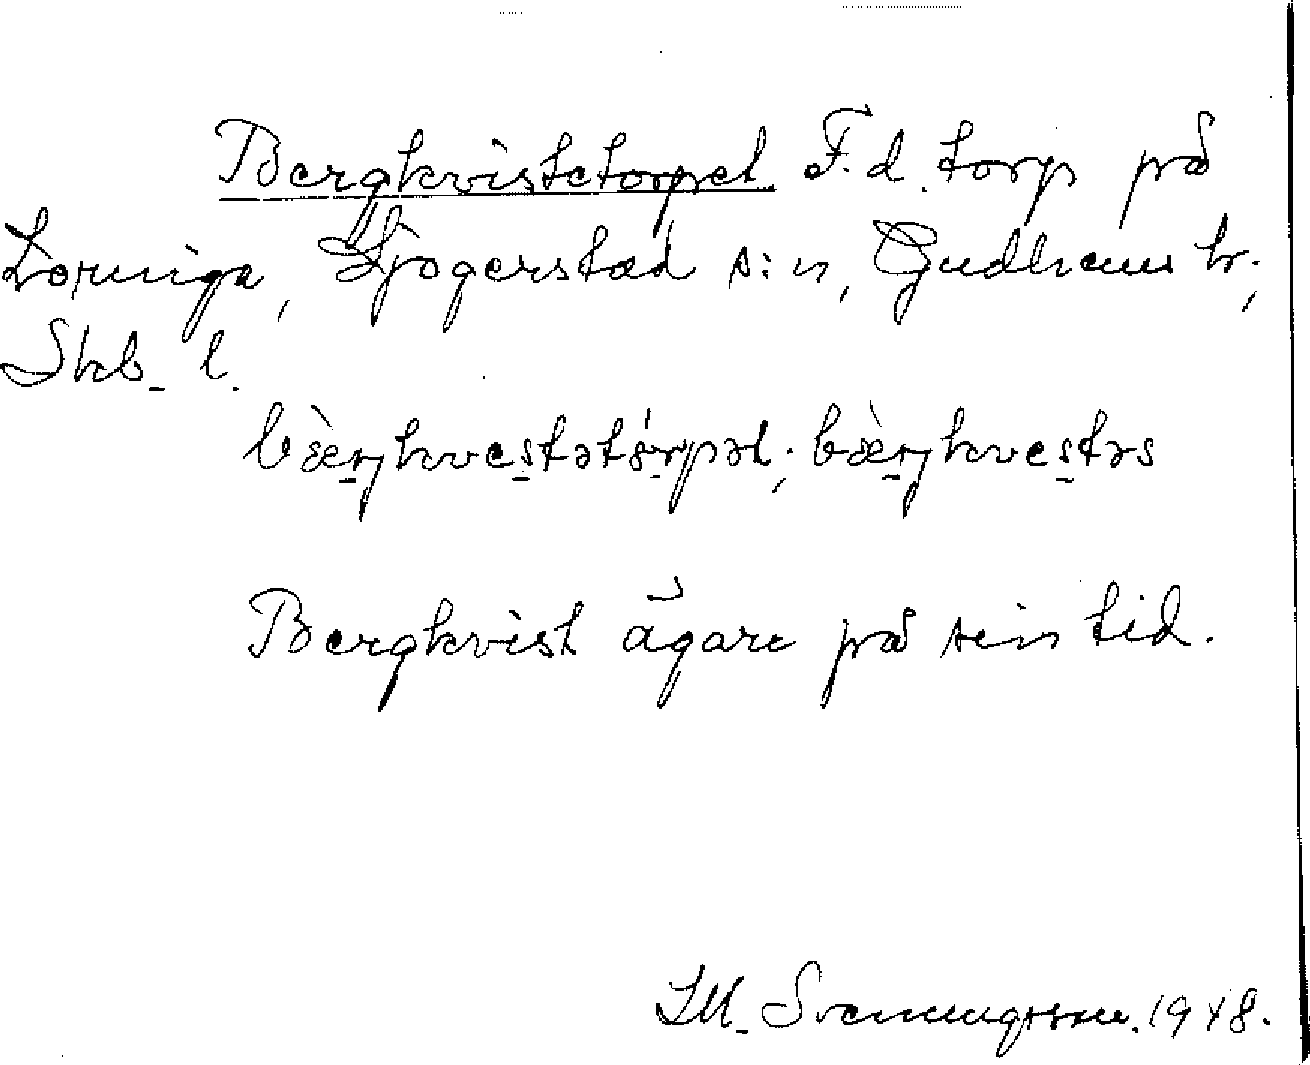 Bergkvistetorpet F.d. torp på
Torunga, Sjogerstad s:n, Gudhems hr,
Skb. l.
bæ̀rjkvestətórpət; bæ̀rjkvestəs
Bergkvist ägare på sin tid.
Svenungsson. 1948.